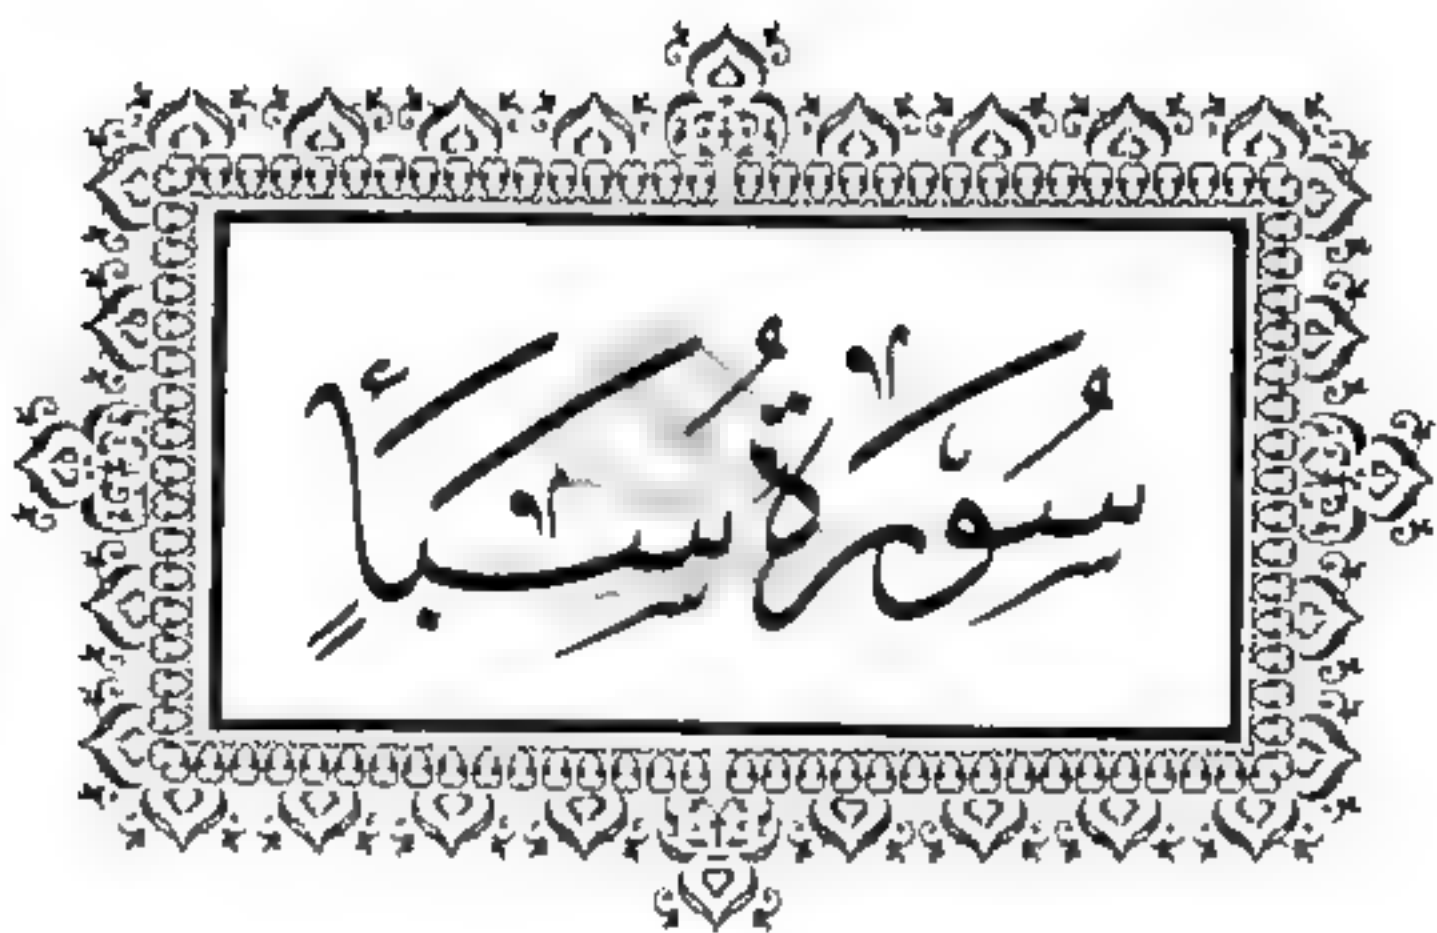 سُوْرَةُ سَبَأٍ